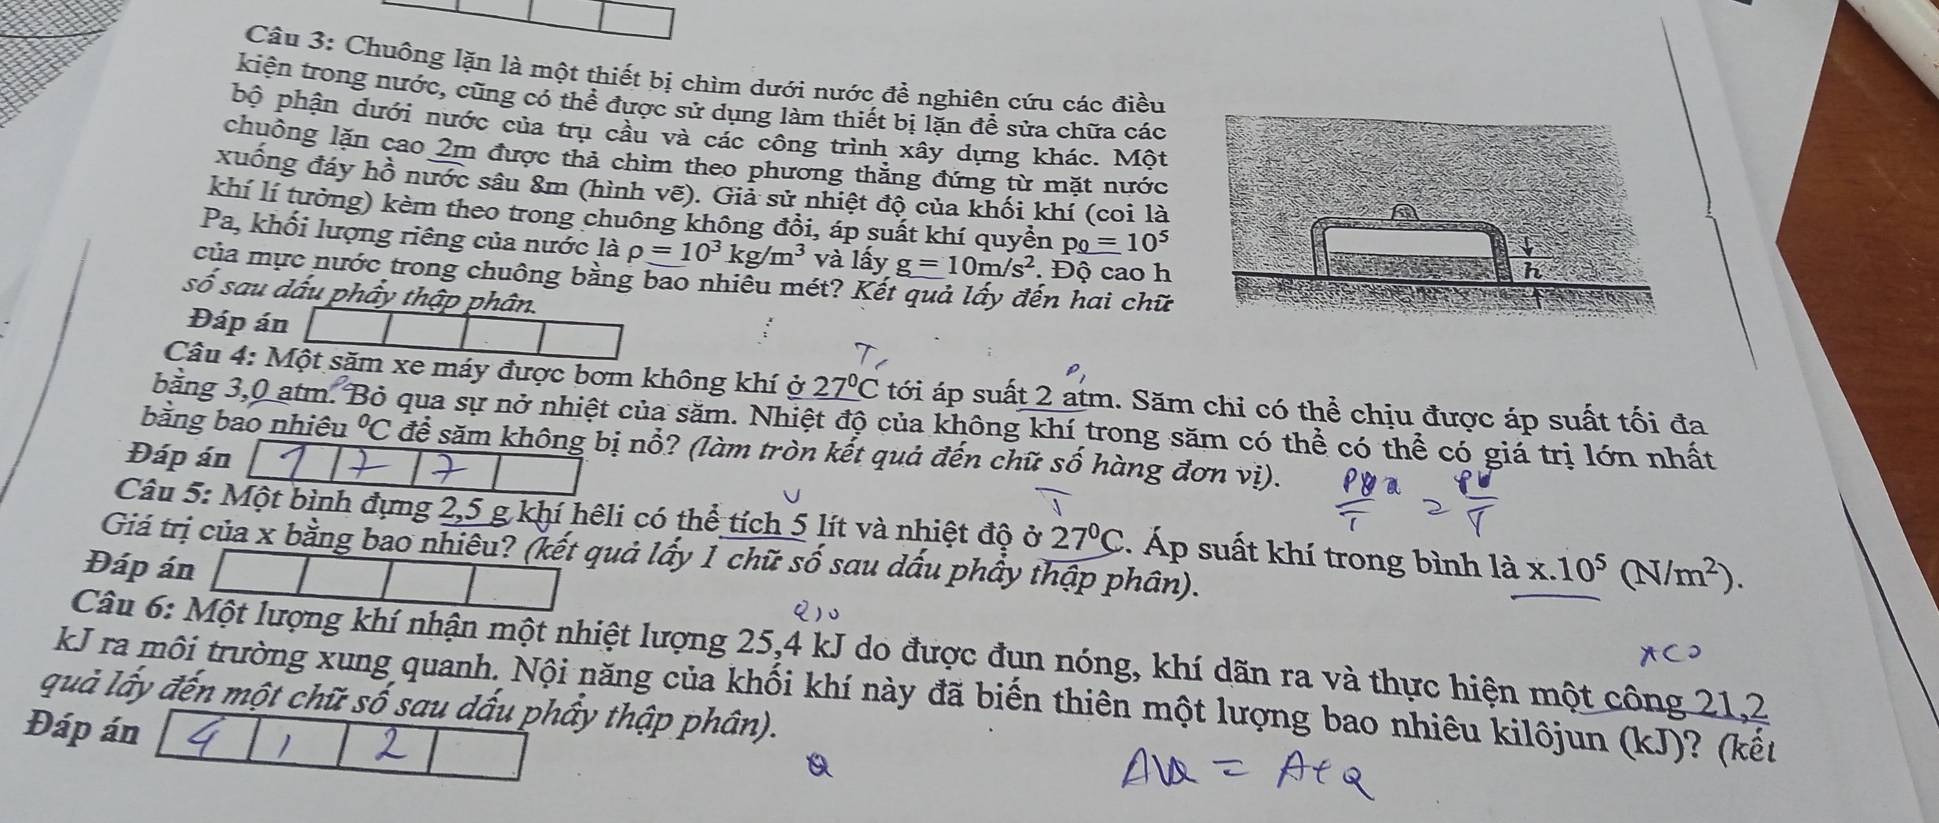 Câu 3: Chuông lặn là một thiết bị chìm dưới nước để nghiên cứu các điều
kiện trong nước, cũng có thể được sử dụng làm thiết bị lặn để sửa chữa các
bộ phận dưới nước của trụ cầu và các công trình xây dựng khác. Một
chuông lặn cao 2m được thả chìm theo phương thẳng đứng từ mặt nước
xuống đáy hồ nước sâu 8m (hình vẽ). Giả sử nhiệt độ của khối khí (coi là
khí lí tưởng) kèm theo trong chuông không đổi, áp suất khí quyển p₀ = 10⁵
Pa, khối lượng riêng của nước là ρ = 10³ kg/m³ và lấy g = 10m/s². Độ cao h
của mực nước trong chuông bằng bao nhiêu mét? Kết quả lấy đến hai chữ
số sau dấu phẩy thập phân.
h
Đáp án
T₁
P₁
Câu 4: Một săm xe máy được bơm không khí ở 27⁰C tới áp suất 2 atm. Săm chỉ có thể chịu được áp suất tối đa
bằng 3,0 atm. Bỏ qua sự nở nhiệt của săm. Nhiệt độ của không khí trong săm có thể có thể có giá trị lớn nhất
bằng bao nhiêu ⁰C để săm không bị nổ? (làm tròn kết quả đến chữ số hàng đơn vị).
Đáp án 1 7 7
V
T
Câu 5: Một bình đựng 2,5 g khí hêli có thể tích 5 lít và nhiệt độ ở 27⁰C. Áp suất khí trong bình là x.10⁵ (N/m²).
Giá trị của x bằng bao nhiêu? (kết quả lấy 1 chữ số sau dấu phẩy thập phân).
Đáp án
Câu 6: Một lượng khí nhận một nhiệt lượng 25,4 kJ do được đun nóng, khí dãn ra và thực hiện một công 21,2
kJ ra môi trường xung quanh. Nội năng của khối khí này đã biến thiên một lượng bao nhiêu kilôjun (kJ)? (kết
quả lấy đến một chữ số sau dấu phẩy thập phân).
Đáp án 4 , 2